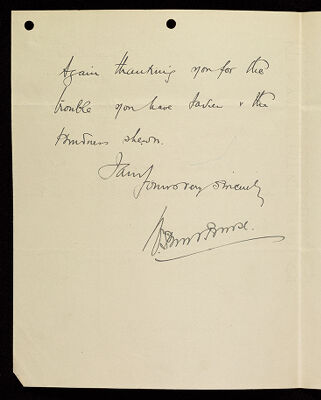 Again thanking you for the
trouble you have taken & the
kindness shewn.
I am
Yours very sincerely